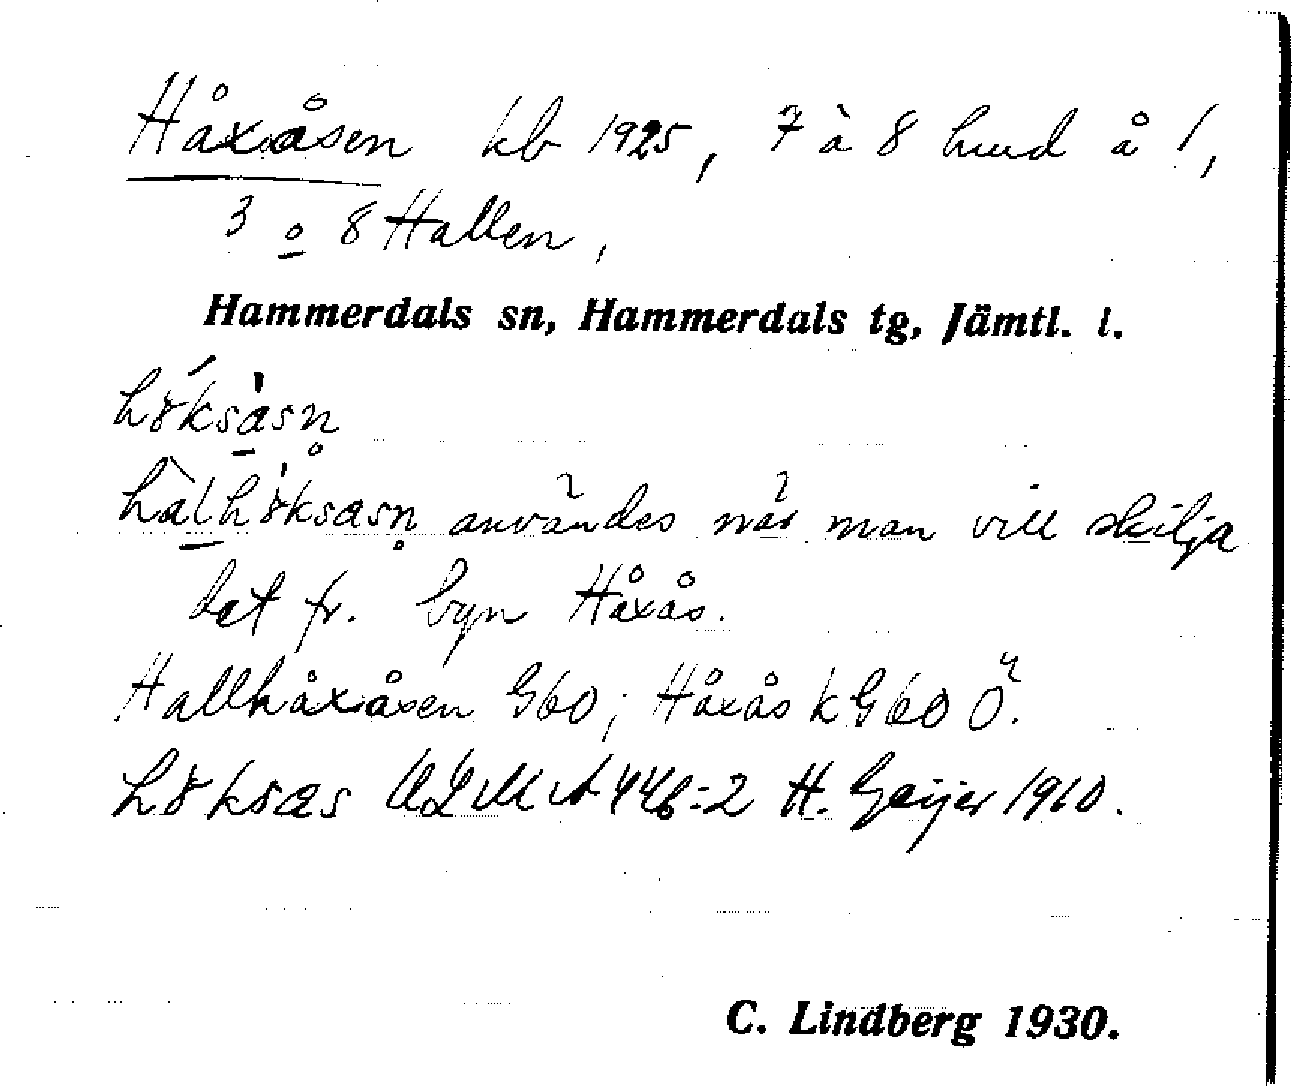 Håxåsen kb 1925, 7 à 8 hmd å 1,
3 o 8 Hallen,
Hammerdals sn, Hammerdals tg, Jämtl. l.
höksåsn
hàlhöksasn användes när man vill skilja
det fr. byn Håxås.
Hallhåxåsen G60; Håxås k G60 Ö.
höksas ULMA 446:2 H. Geijer 1910.
C. Lindberg 1930.